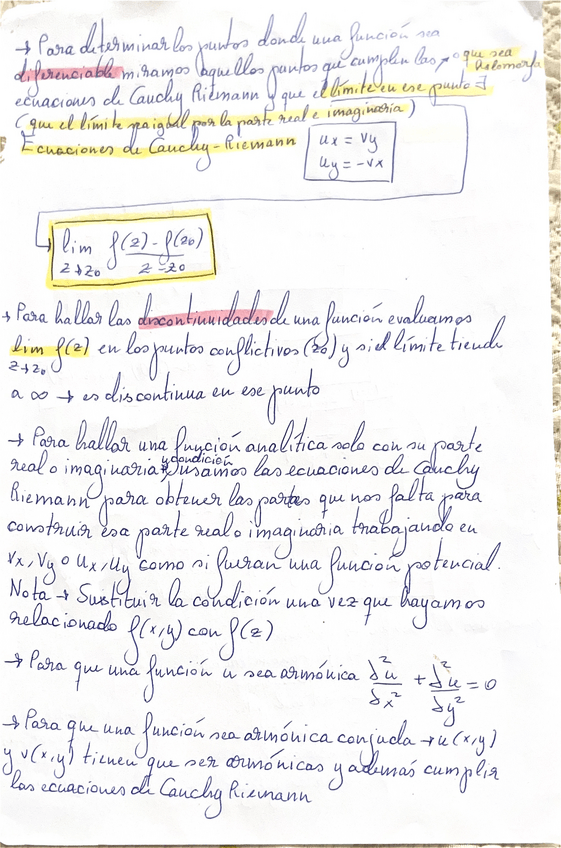 → Para determinar los puntos donde una función sea
diferenciable miramos aquellos puntos que cumplen las → o que sea holomorfa
ecuaciones de Cauchy Riemann y que el límite en ese punto ∃
(que el límite sea igual por la parte real e imaginaria)
Ecuaciones de Cauchy-Riemann
ux = vy
uy = -vx
lim z→z0 f(z) - f(z0) / z - z0
→ Para hallar las discontinuidades de una función evaluamos
lim z→z0 f(z) en los puntos conflictivos (z0) y si el límite tiende
a ∞ → es discontinua en ese punto
→ Para hallar una función analítica solo con su parte
real o imaginaria y condición, usamos las ecuaciones de Cauchy
Riemann para obtener las partes que nos falta para
construir esa parte real o imaginaria trabajando en
vx, vy o ux, uy como si fueran una función potencial.
Nota → Sustituir la condición una vez que hayamos
relacionado f(x,y) con f(z)
→ Para que una función u sea armónica ∂²u/∂x² + ∂²u/∂y² = 0
→ Para que una función sea armónica conjuda → u(x,y)
y v(x,y) tienen que ser armónicas y además cumplir
las ecuaciones de Cauchy Riemann